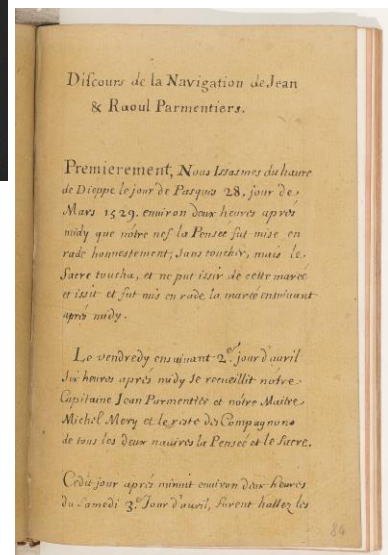 Discours de la Navigation de Jean
& Raoul Parmentiers.
Premierement, Nous Issasmes du havre
de Dieppe le jour de Pasques 28. jour de
Mars 1529. environ deux heures aprés
midy que nótre nef la Pensée fut mise en
rade honnestement, sans toucher, mais le
Sacre toucha, et ne put issir de cette marée
et issit et fut mis en rade la marée ensuivant
aprés midy.
Le vendredy ensuivant 2.e jour d'avril
six heures aprés midy se recueillit nótre
Capitaine Jean Parmentier et nótre Maitre
Michel Mery et le reste des Compagnons
de tous les deux navires la Pensée et le Sacre.
Cedit jour aprés minuit environ deux heures
du Samedi 3.e Jour d'avril, furent hallez les
84